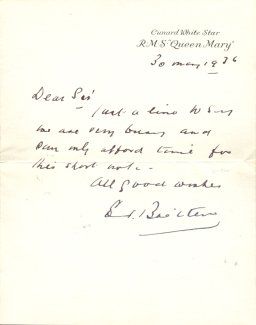 Cunard White Star
R.M.S. "Queen Mary"
30 May 1936
Dear Sir
Just a line to say
we are very busy and
can only afford time for
this short note.
All good wishes
E.